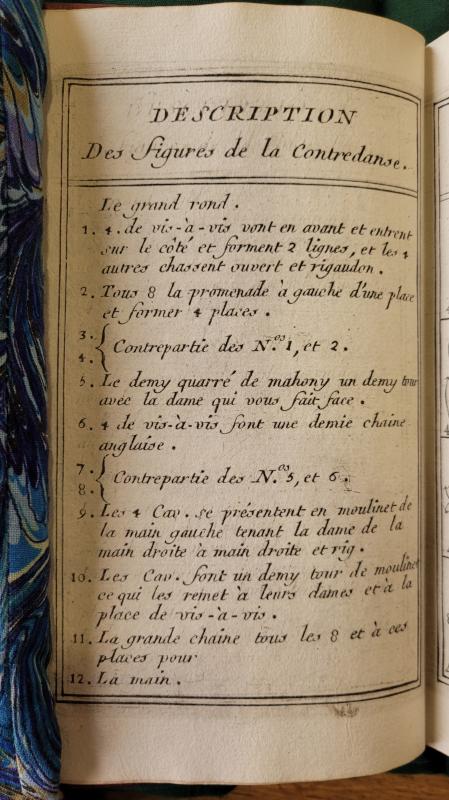 DESCRIPTION
Des figures de la Contredanse.
Le grand rond.
1. 4. de vis-à-vis vont en avant et entrent
sur le côté et forment 2 lignes, et les 4
autres chassent ouvert et rigaudon.
2. Tous 8 la promenade à gauche d'une place
et former 4 places.
3.
4. { Contrepartie des N.os 1, et 2.
5. Le demy quarré de mahony un demy tour
avec la dame qui vous fait face.
6. 4 de vis-à-vis font une demie chaine
anglaise.
7.
8. { Contrepartie des N.os 5, et 6.
9. Les 4 Cav. se présentent en moulinet de
la main gauche tenant la dame de la
main droite à main droite et rig.
10. Les Cav. font un demy tour de moulinet
ce qui les remet à leurs dames et à la
place de vis-à-vis.
11. La grande chaine tous les 8 et à ces
places pour
12. La main.